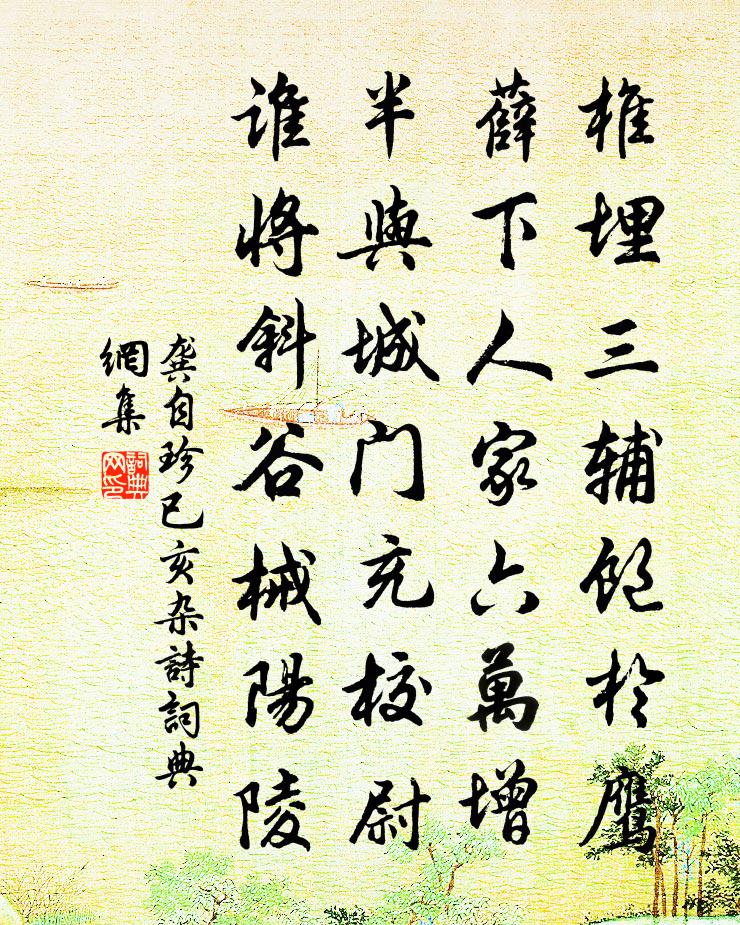 椎埋三辅飽於鷹
薛下人家六萬增
半與城门充校尉
谁將斜谷械陽陵
龚自珍己亥杂詩詞典
網集
詞典
网印